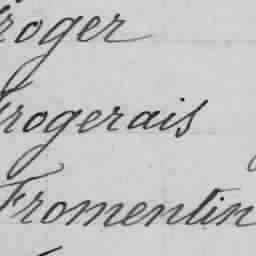 Froger
Frogerais
Fromentin